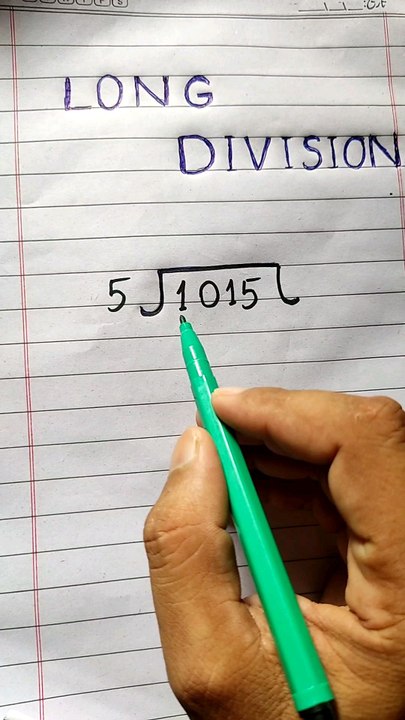 LONG
DIVISION
5 1015